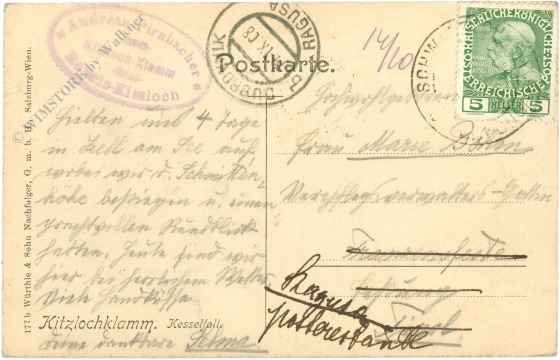 Andreas Pirnbacher
Kitzloch-Klamm
WIMSTORE by Walkner
DUBROVNIK
RAGUSA
Postkarte.
14/10
SCHW
KAISERLICHE KÖNIGLICHE
ÖSTERREICHISCHE
5 HELLER 5
Hielten uns 4 Tage
in Zell am See auf,
wobei wir d. Schmitten-
höhe bestiegen u. einen
prachtvollen Rundblick
hatten. Heute sind wir
hier bei herrlichem Wetter.
Viele Handküsse
Deine dankbare Selma
Hochwohlgeboren
Frau Marie
Verpflegsverwalters-Gattin
Franzensfeste
Festung
Tirol
Ragusa
posterestante
Kitzlochklamm. Kesselfall.
177 b Würthle & Sohn Nachfolger, G. m. b. H., Salzburg-Wien.